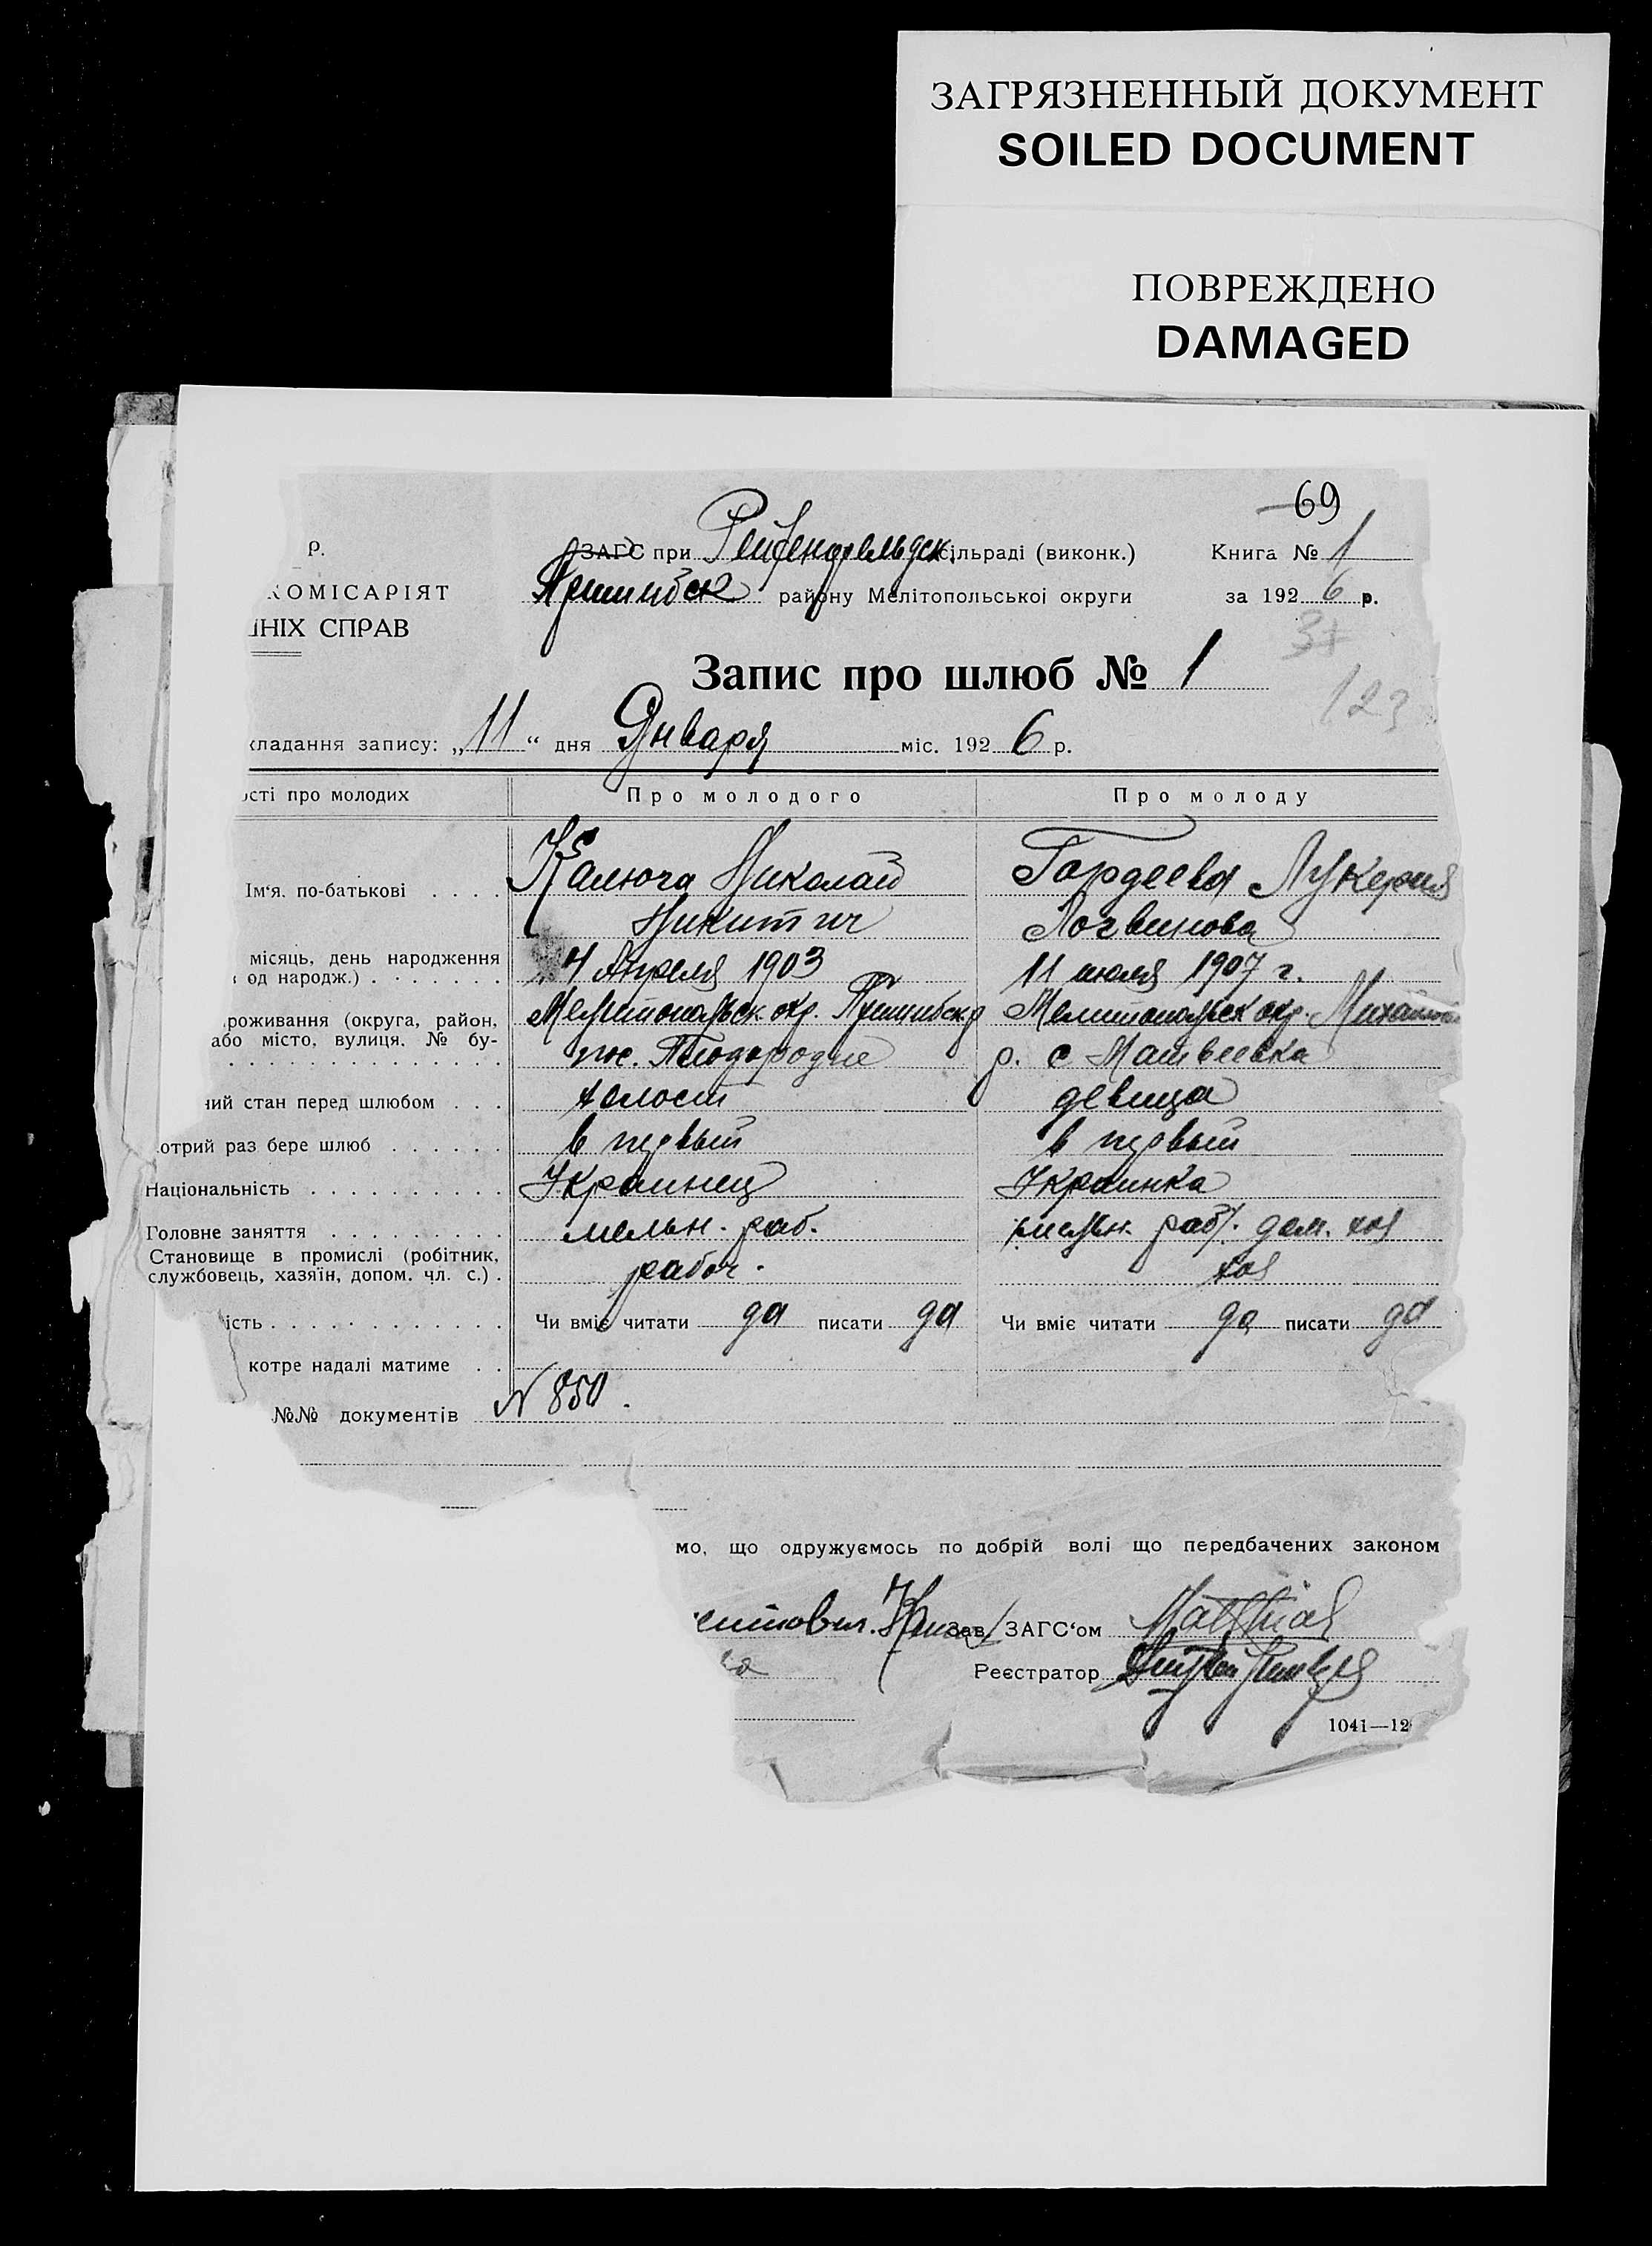 ЗАГРЯЗНЕННЫЙ ДОКУМЕНТ
SOILED DOCUMENT
ПОВРЕЖДЕНО
DAMAGED
69
Р. ЗАГС при Рейхенфельдск. сільраді (виконк.) Книга № 1
КОМІСАРІЯТ Пришибск району Мелітопольської округи за 1926 р.
НІХ СПРАВ
37
Запис про шлюб № 1
123
кладання запису: „11“ дня Января міс. 1926 р.
ості про молодих Про молодого Про молоду
Ім'я. по-батькові . . . . Калюга Николай Гордеева Лукерия
Никитич Логвинова
місяць, день народження
од народж.) . . . . . . . 4 Апреля 1903 11 июля 1907 г.
роживання (округа, район, Мелитопольск. окр. Пришибск р Мелитопольск окр. Михайлов
або місто, вулиця, № бу-
пос. Плодородие р. с Матвеевка
ий стан перед шлюбом . . . холост девица
отрий раз бере шлюб . . . . . . в первый в первый
Національність . . . . . . . . . . Украинец Украинка
Головне заняття . . . . . . . . . мельн. раб. мельн. раб. дом. хоз
Становище в промислі (робітник,
службовець, хазяїн, допом. чл. с.) . рабоч. хоз
ість . . . . . . . . . . . . Чи вміє читати да писати да Чи вміє читати да писати да
котре надалі матиме . .
№№ документів N 850.
мо, що одружуємось по добрійволі що передбачених законом
Зав. ЗАГС'ом Matthias
ва Реєстратор
1041—12